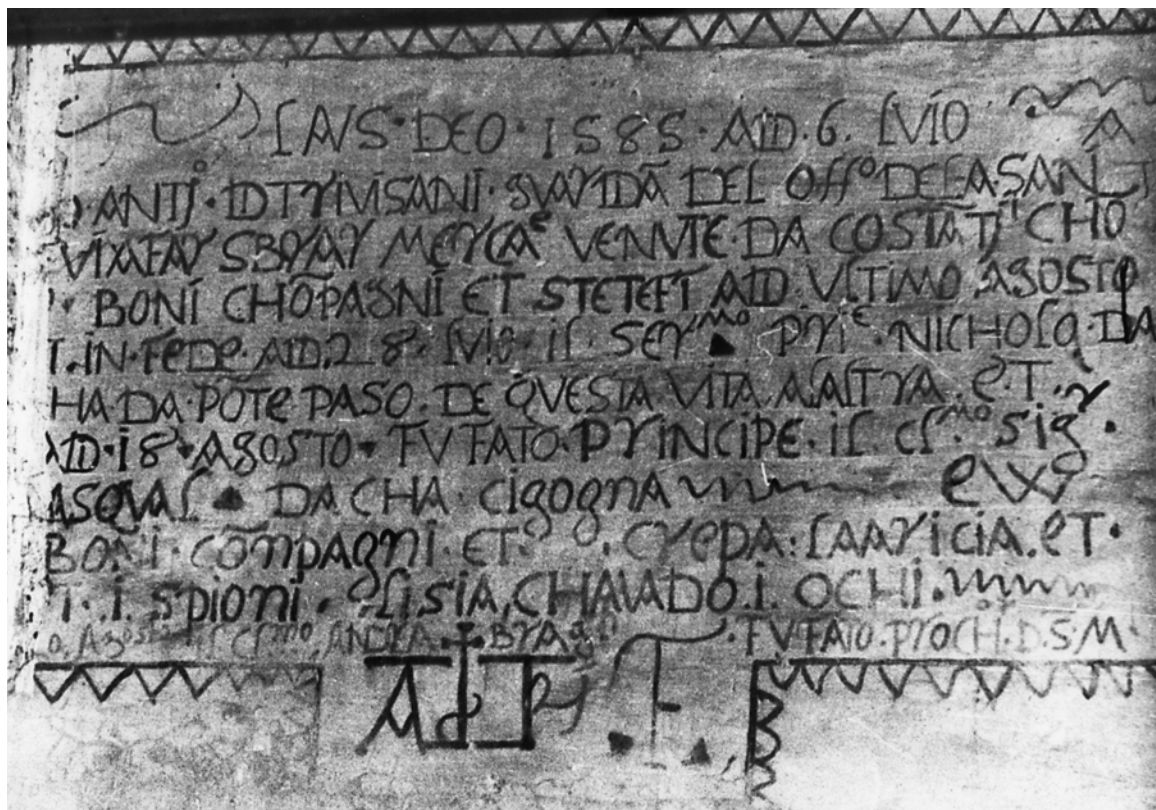 LAVS·DEO·1585·AID·6·LVIO A
ANTJº·DTRIVISANI·GVARDÃ DEL OFFº DELA·SANI
SBORAR MERCAE VENVTE·DA COSTÃTJ CHO
BONI CHÕPAGNI ET STETEFT AID·VLTIMO AGOSTO
IN·FEDE·AID·28·LVIO·IL SERMO PRIE·NICHOLO·DA
HA DA·PÕTE PASO·DE QVESTA VITA·ALALTRA·E·T·
AID·18·AGOSTO·FV FATO·PRINCIPE·IL CLMO SIG·
ASQVAL DA CHA·CIGOGNA EW
BONI·COÑPAGNI·ET·CREPA·LAARICIA·ET·
I·I·SPIONI·LI·SIA·CHAVADO·I·OCHI·
AGOSTO CLMO ANDREA BRAG FV FATO·PROCH·D·S·M·